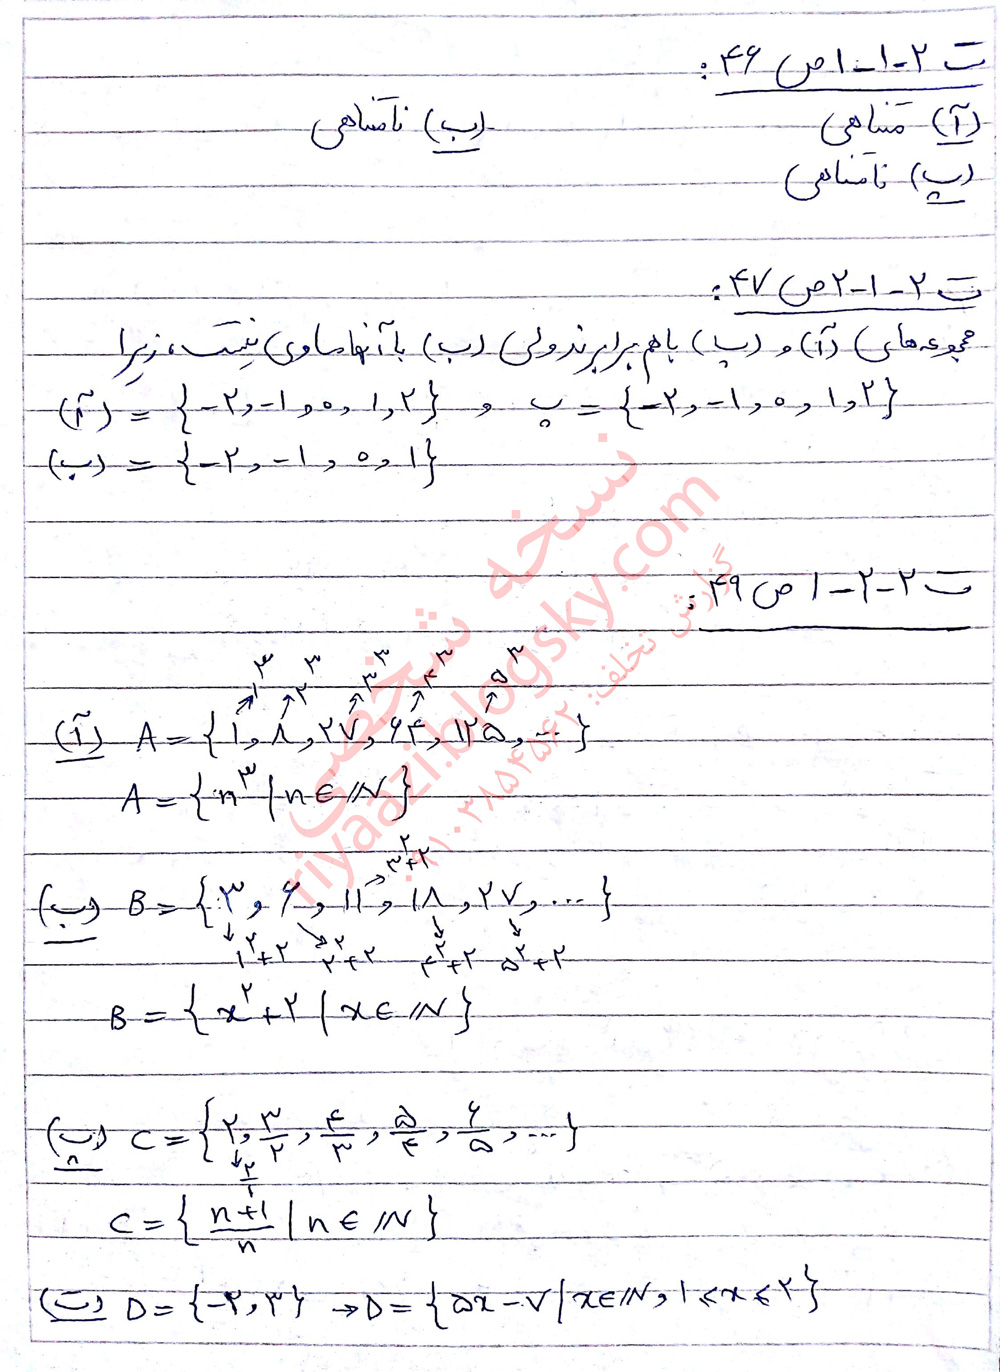 ت ۲-۱-۱ ص ۴۶:
(آ) متناهی (ب) نامتناهی
(پ) نامتناهی
ت ۲-۱-۲ ص ۴۷:
مجموعه‌های (آ) و (پ) باهم برابرند ولی (ب) با آنها مساوی نیست، زیرا
(آ) = {-۲, -۱, ۰, ۱, ۲} و پ = {-۲, -۱, ۰, ۱, ۲}
(ب) = {-۲, -۱, ۰, ۱}
ت ۲-۲-۱ ص ۴۹:
۱³ ۲³ ۳³ ۴³ ۵³
(آ) A = {۱, ۸, ۲۷, ۶۴, ۱۲۵, ...}
A = {n³ | n ∈ ℕ}
→ ۳²+۲
(ب) B = {۳, ۶, ۱۱, ۱۸, ۲۷, ...}
۱²+۲ ۲²+۲ ۴²+۲ ۵²+۲
B = {x²+۲ | x ∈ ℕ}
(پ) C = {۲, ۳/۲, ۴/۳, ۵/۴, ۶/۵, ...}
۲/۱
C = {n+1/n | n ∈ ℕ}
(ت) D = {-۲, ۳} → D = {۵x - ۷ | x ∈ ℕ, ۱ ≤ x ≤ ۲}
نسخه شخصی
riyaazi.blogsky.com
گزارش تخلف: